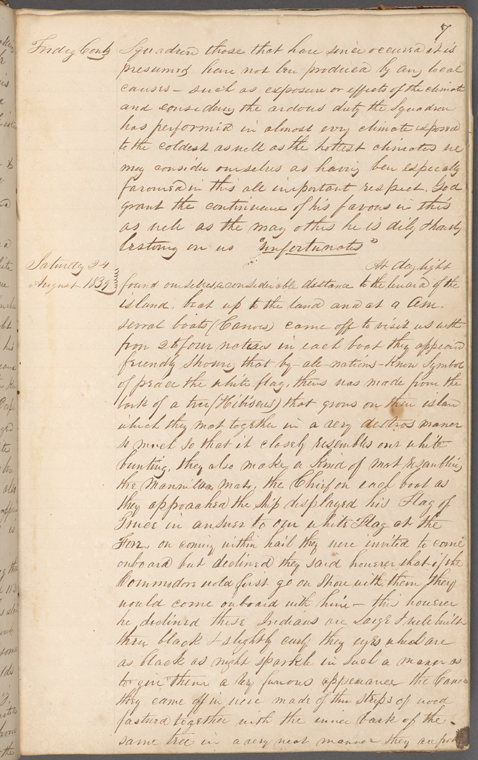 7
Friday Cont'd Squadron those that have since occurred it is
presumed have not been produced by any local
causes - such as exposure or effects of the climate
and considering the ardous duty the Squadron
has performed in almost every climate exposed
to the coldest as well as the hottest climates we
may consider ourselves as having been especially
favoured in this all important respect. God
grant the continuence of his favours in this
as well as the many others he is daily & hourly
bestoing on us "unfortunates"
Saturday 24 At daylight
August 1839 found ourselves a considerable distance to the leward of the
island. beat up to the land and at 9 Am.
several boats (Canoes) came off to visit us with
from 2 to four natives in each boat they appeared
friendly showing that by-all-nations-Know Symbol
of peace the white flag, theirs was made from the
bark of a tree (Hibiscus) that grows on their islan
which they mat together in a very dextros manor
so much so that it closely resembles our white
bunting, they also make a kind of mat resembling
the Mannilla mat, the Chief in each boat as
they approached the ship displayed his Flag of
Truce in answer to our white Flag at the
Fore, on coming within hail they were invited to come
onboard but declined they said however that if the
Commodore would first go on shore with them they
would come onboard with him - this however
he declined these Indians are large & well built
their black & slightly curly they eyes which are
as black as night sparkle in such a manor as
to give them a very furious appearance the Canoes
they came off in were made of thin strips of wood
fastured together with the inner bark of the
same tree in a very neat manner they are